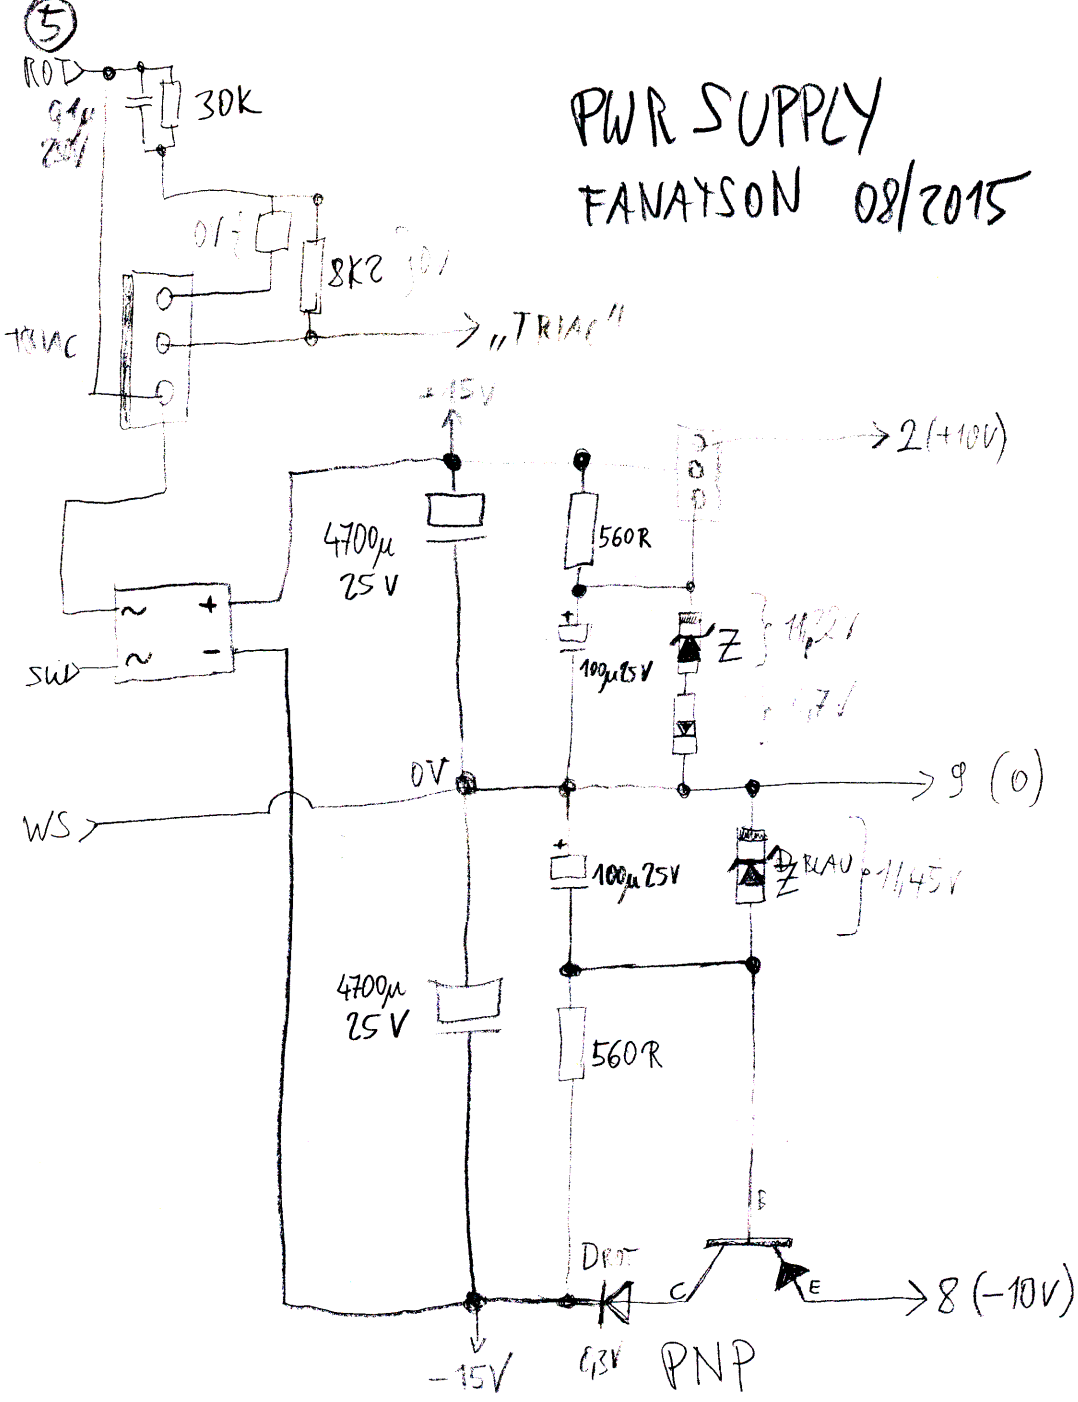 5
ROT
30K
PWR SUPPLY
FANAYSON 08/2015
8K2
18VAC
„TRIAC"
+15V
2(+10V)
4700µ
25V
560R
+
~ +
~ -
100µ25V
Z
SW
0V
9 (0)
WS
+
100µ25V
Z BLAU
11,45V
4700µ
25V
560R
B
DROT
C
E
8(-10V)
-15V
PNP